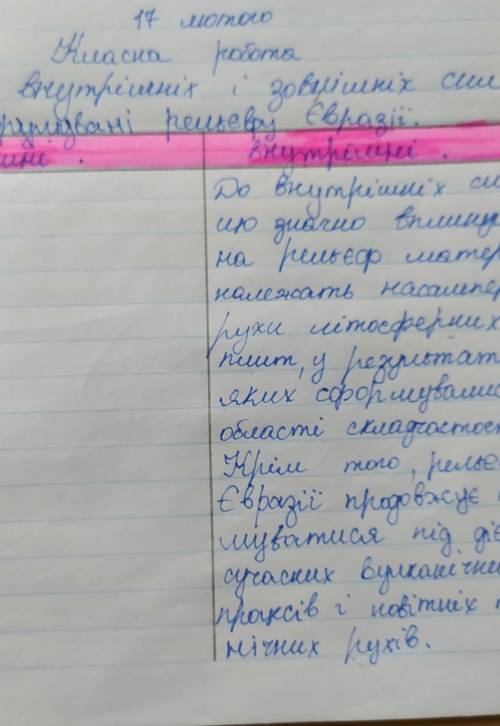 17 лютого
Класна робота
внутрішніх і зовнішніх сил
рмувані рельєву Євразії.
шні. внутрішні.
До внутрішніх си
що значно вплину
на рельєф матер
належать насампер
рухи літосферних
плит, у результат
яких сформувалис
області складчастост
Крім того, рельє
Євразії продовжує
муватися під діє
сучасних вулканічни
праксів і новітніх т
нічних рухів.